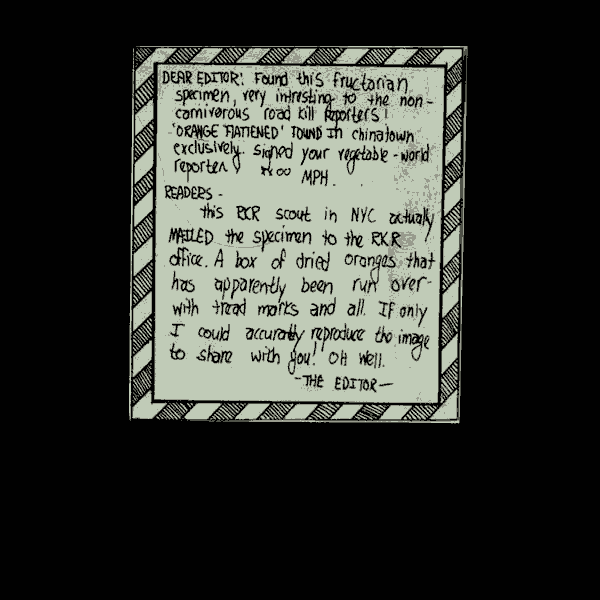 DEAR EDITOR: Found this fructarian
specimen, very intresting to the non-
carnivorous road kill reporters!
'ORANGE FLATTENED' FOUND IN chinatown
exclusively. signed your vegetable-world
reporter,
xxoo MPH.
READERS -
this RKR scout in NYC actually
MAILED the specimen to the RKR
office. A box of dried oranges that
has apparently been run over-
with tread marks and all. IF only
I could accuratly reproduce the image
to share with you! OH well.
-THE EDITOR-